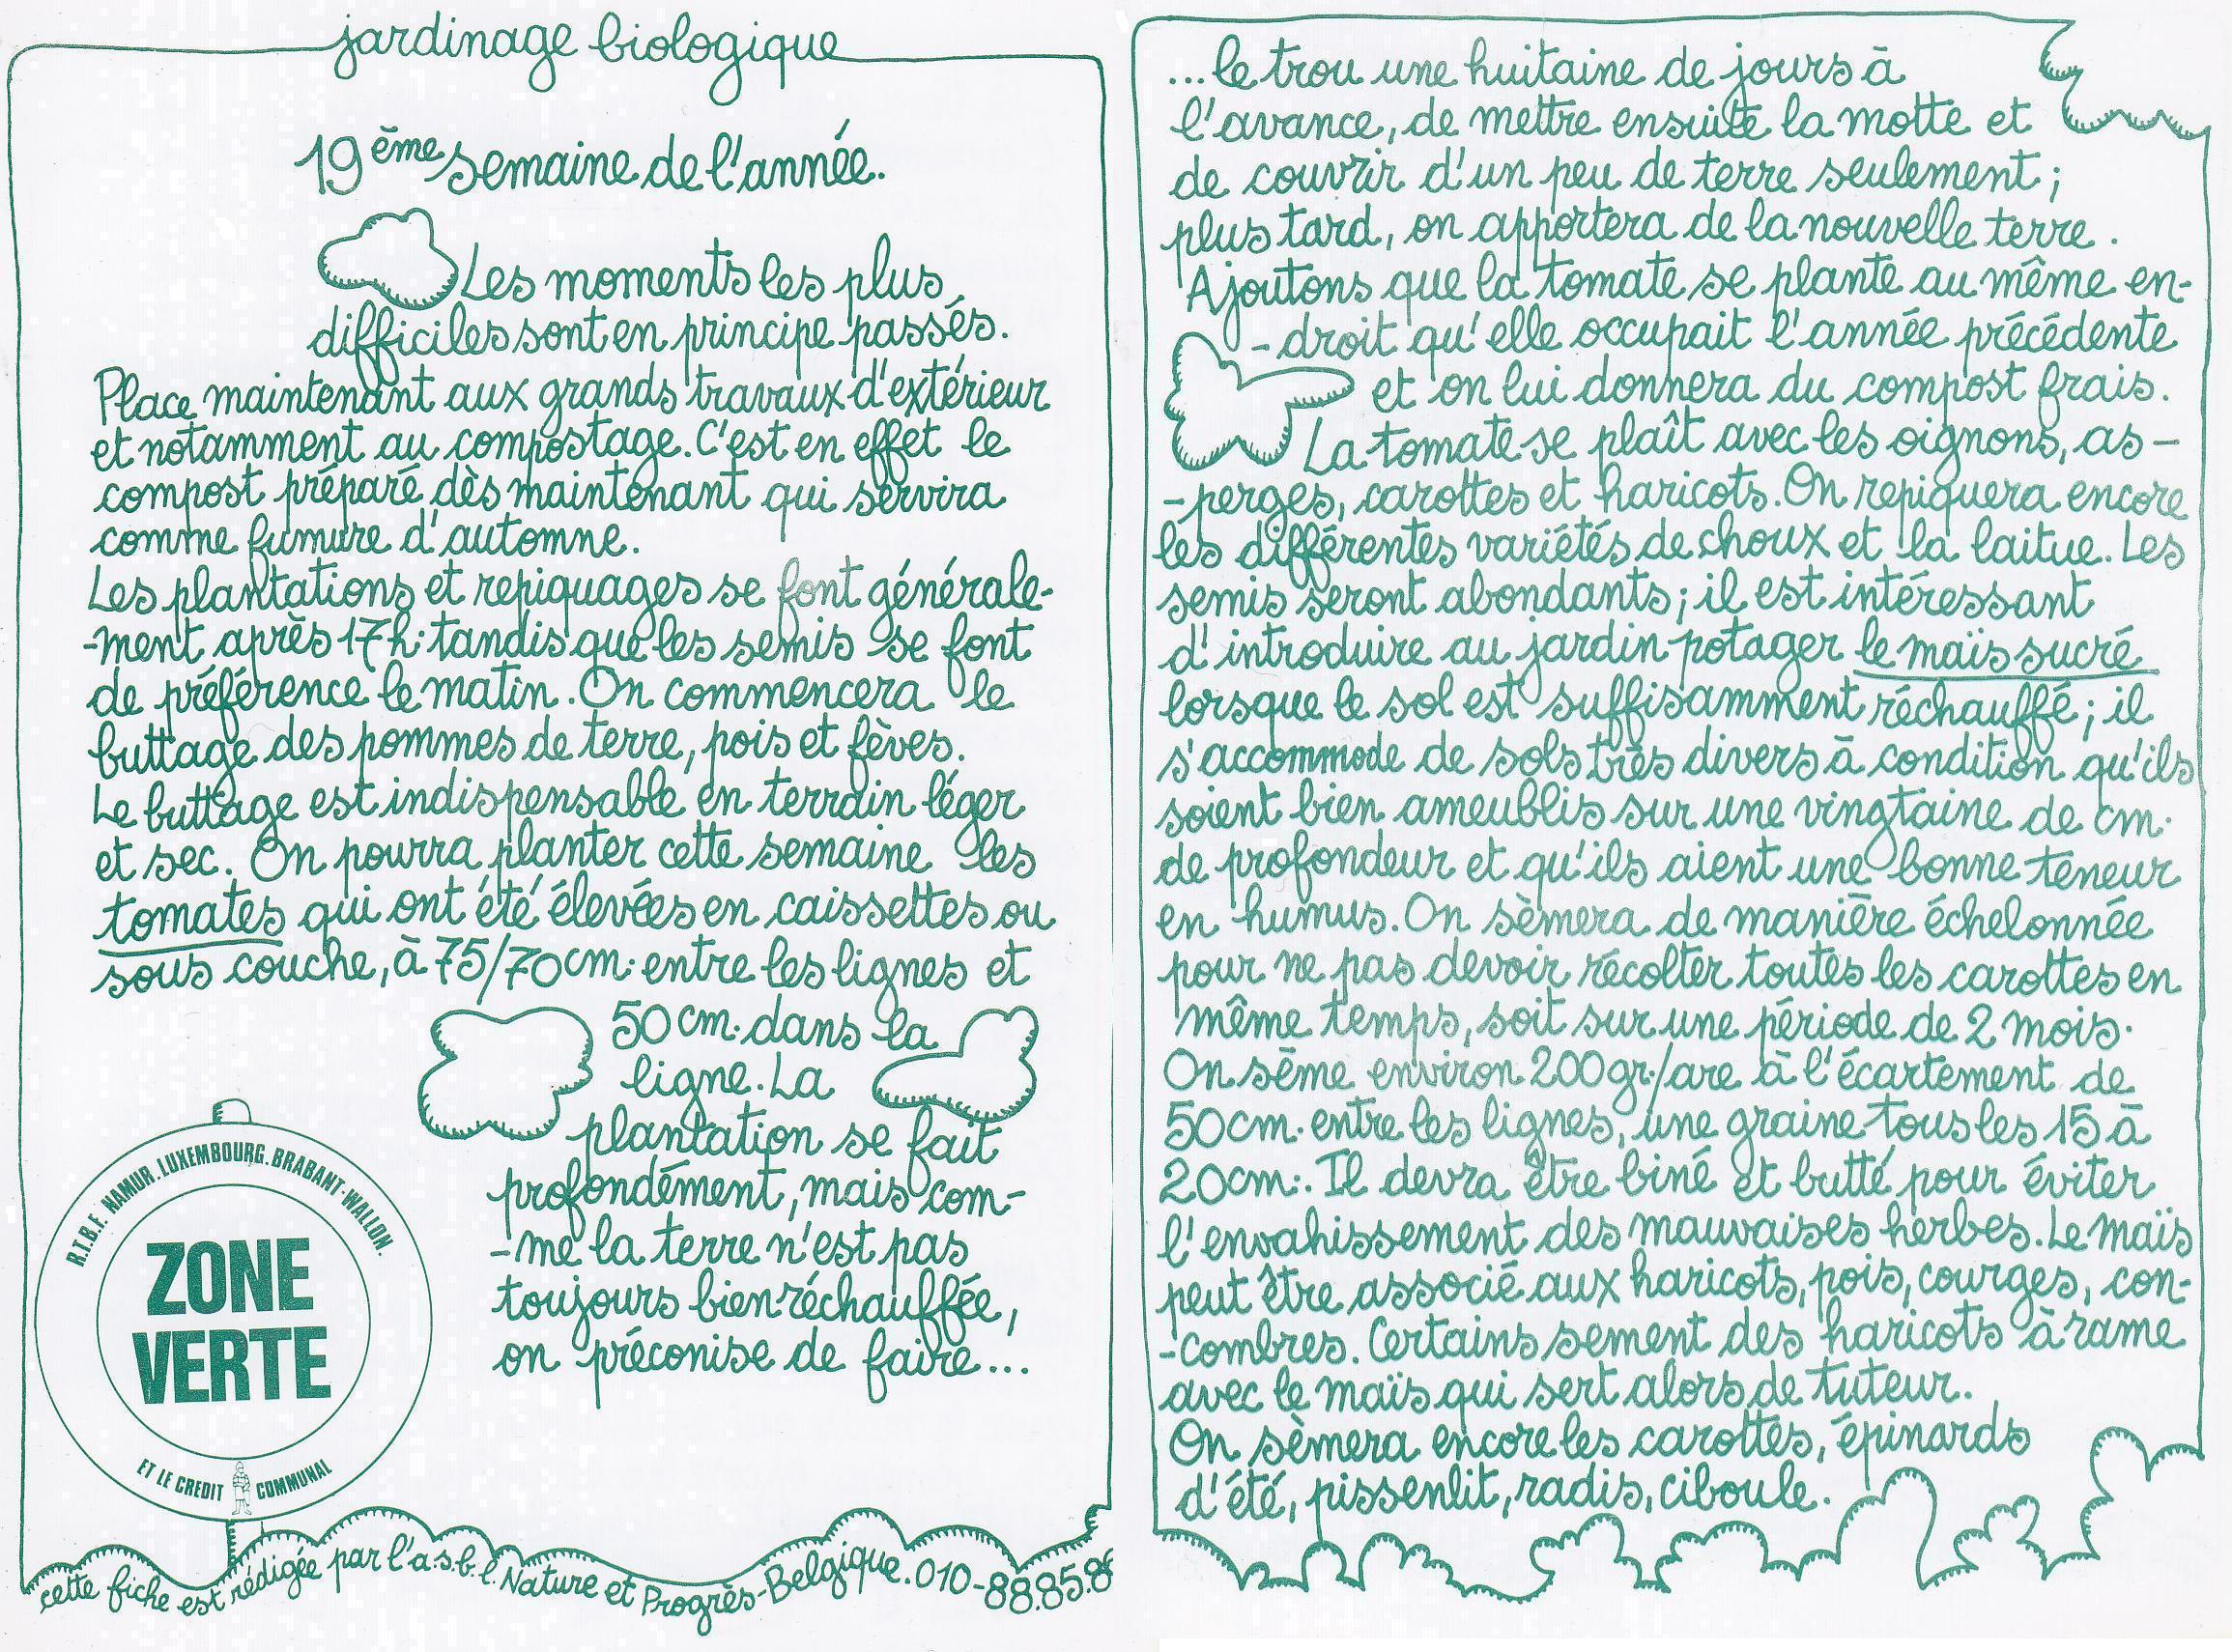 jardinage biologique
19ème semaine de l'année.
Les moments les plus
difficiles sont en principe passés.
Place maintenant aux grands travaux d'extérieur
et notamment au compostage. C'est en effet le
compost préparé dès maintenant qui servira
comme fumure d'automne.
Les plantations et repiquages se font générale-
-ment après 17h. tandis que les semis se font
de préférence le matin. On commencera le
buttage des pommes de terre, pois et fèves.
Le buttage est indispensable en terrain léger
et sec. On pourra planter cette semaine les
tomates qui ont été élevées en caissettes ou
sous couche, à 75/70cm. entre les lignes et
50 cm. dans la
ligne. La
plantation se fait
profondément, mais com-
-me la terre n'est pas
toujours bien réchauffée,
on préconise de faire...
R.T.B.F. NAMUR. LUXEMBOURG. BRABANT-WALLON.
ZONE
VERTE
ET LE CREDIT COMMUNAL
cette fiche est rédigée par l'a.s.b.l. Nature et Progrès-Belgique. 010-88.85.8
...le trou une huitaine de jours à
l'avance, de mettre ensuite la motte et
de couvrir d'un peu de terre seulement;
plus tard, on apportera de la nouvelle terre.
Ajoutons que la tomate se plante au même en-
-droit qu'elle occupait l'année précédente
et on lui donnera du compost frais.
La tomate se plaît avec les oignons, as-
-perges, carottes et haricots. On repiquera encore
les différentes variétés de choux et la laitue. Les
semis seront abondants; il est intéressant
d'introduire au jardin potager le maïs sucré
lorsque le sol est suffisamment réchauffé; il
s'accommode de sols très divers à condition qu'ils
soient bien ameublis sur une vingtaine de cm.
de profondeur et qu'ils aient une bonne teneur
en humus. On sèmera de manière échelonnée
pour ne pas devoir récolter toutes les carottes en
même temps, soit sur une période de 2 mois.
On sème environ 200gr./are à l'écartement de
50cm. entre les lignes, une graine tous les 15 à
20cm.. Il devra être biné et butté pour éviter
l'envahissement des mauvaises herbes. Le maïs
peut être associé aux haricots, pois, courges, con-
-combres. Certains sement des haricots à rame
avec le maïs qui sert alors de tuteur.
On sèmera encore les carottes, épinards
d'été, pissenlit, radis, ciboule.